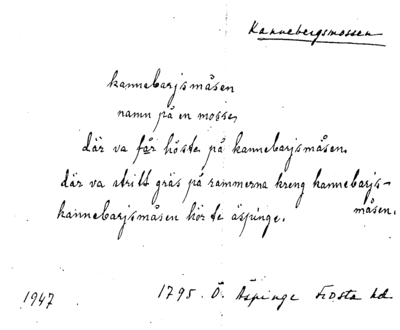 Kannebergsmossen
kannebarjsmåsen
namn på en mosse,
där va får höste på kannebarjsmåsen.
där va stritt gräs på rammerna kreng kannebarjs-
måsen.
kannebarjsmåsen hör te äspinge.
1947
1795. Ö. Äspinge Frosta hd